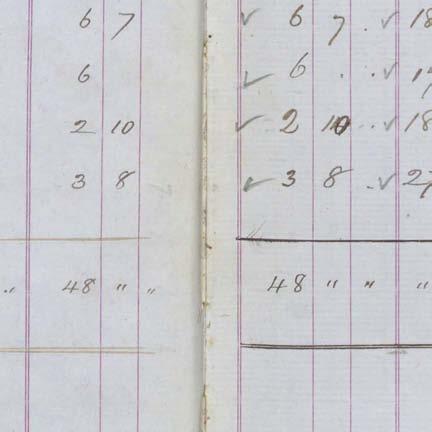 6 7 ✓ 6 7 . ✓ 18
6 ✓ 6 . . ✓
2 10 ✓ 2 10 . . ✓ 18
3 8 ✓ 3 8 . ✓ 27
" 48 " " 48 " " "